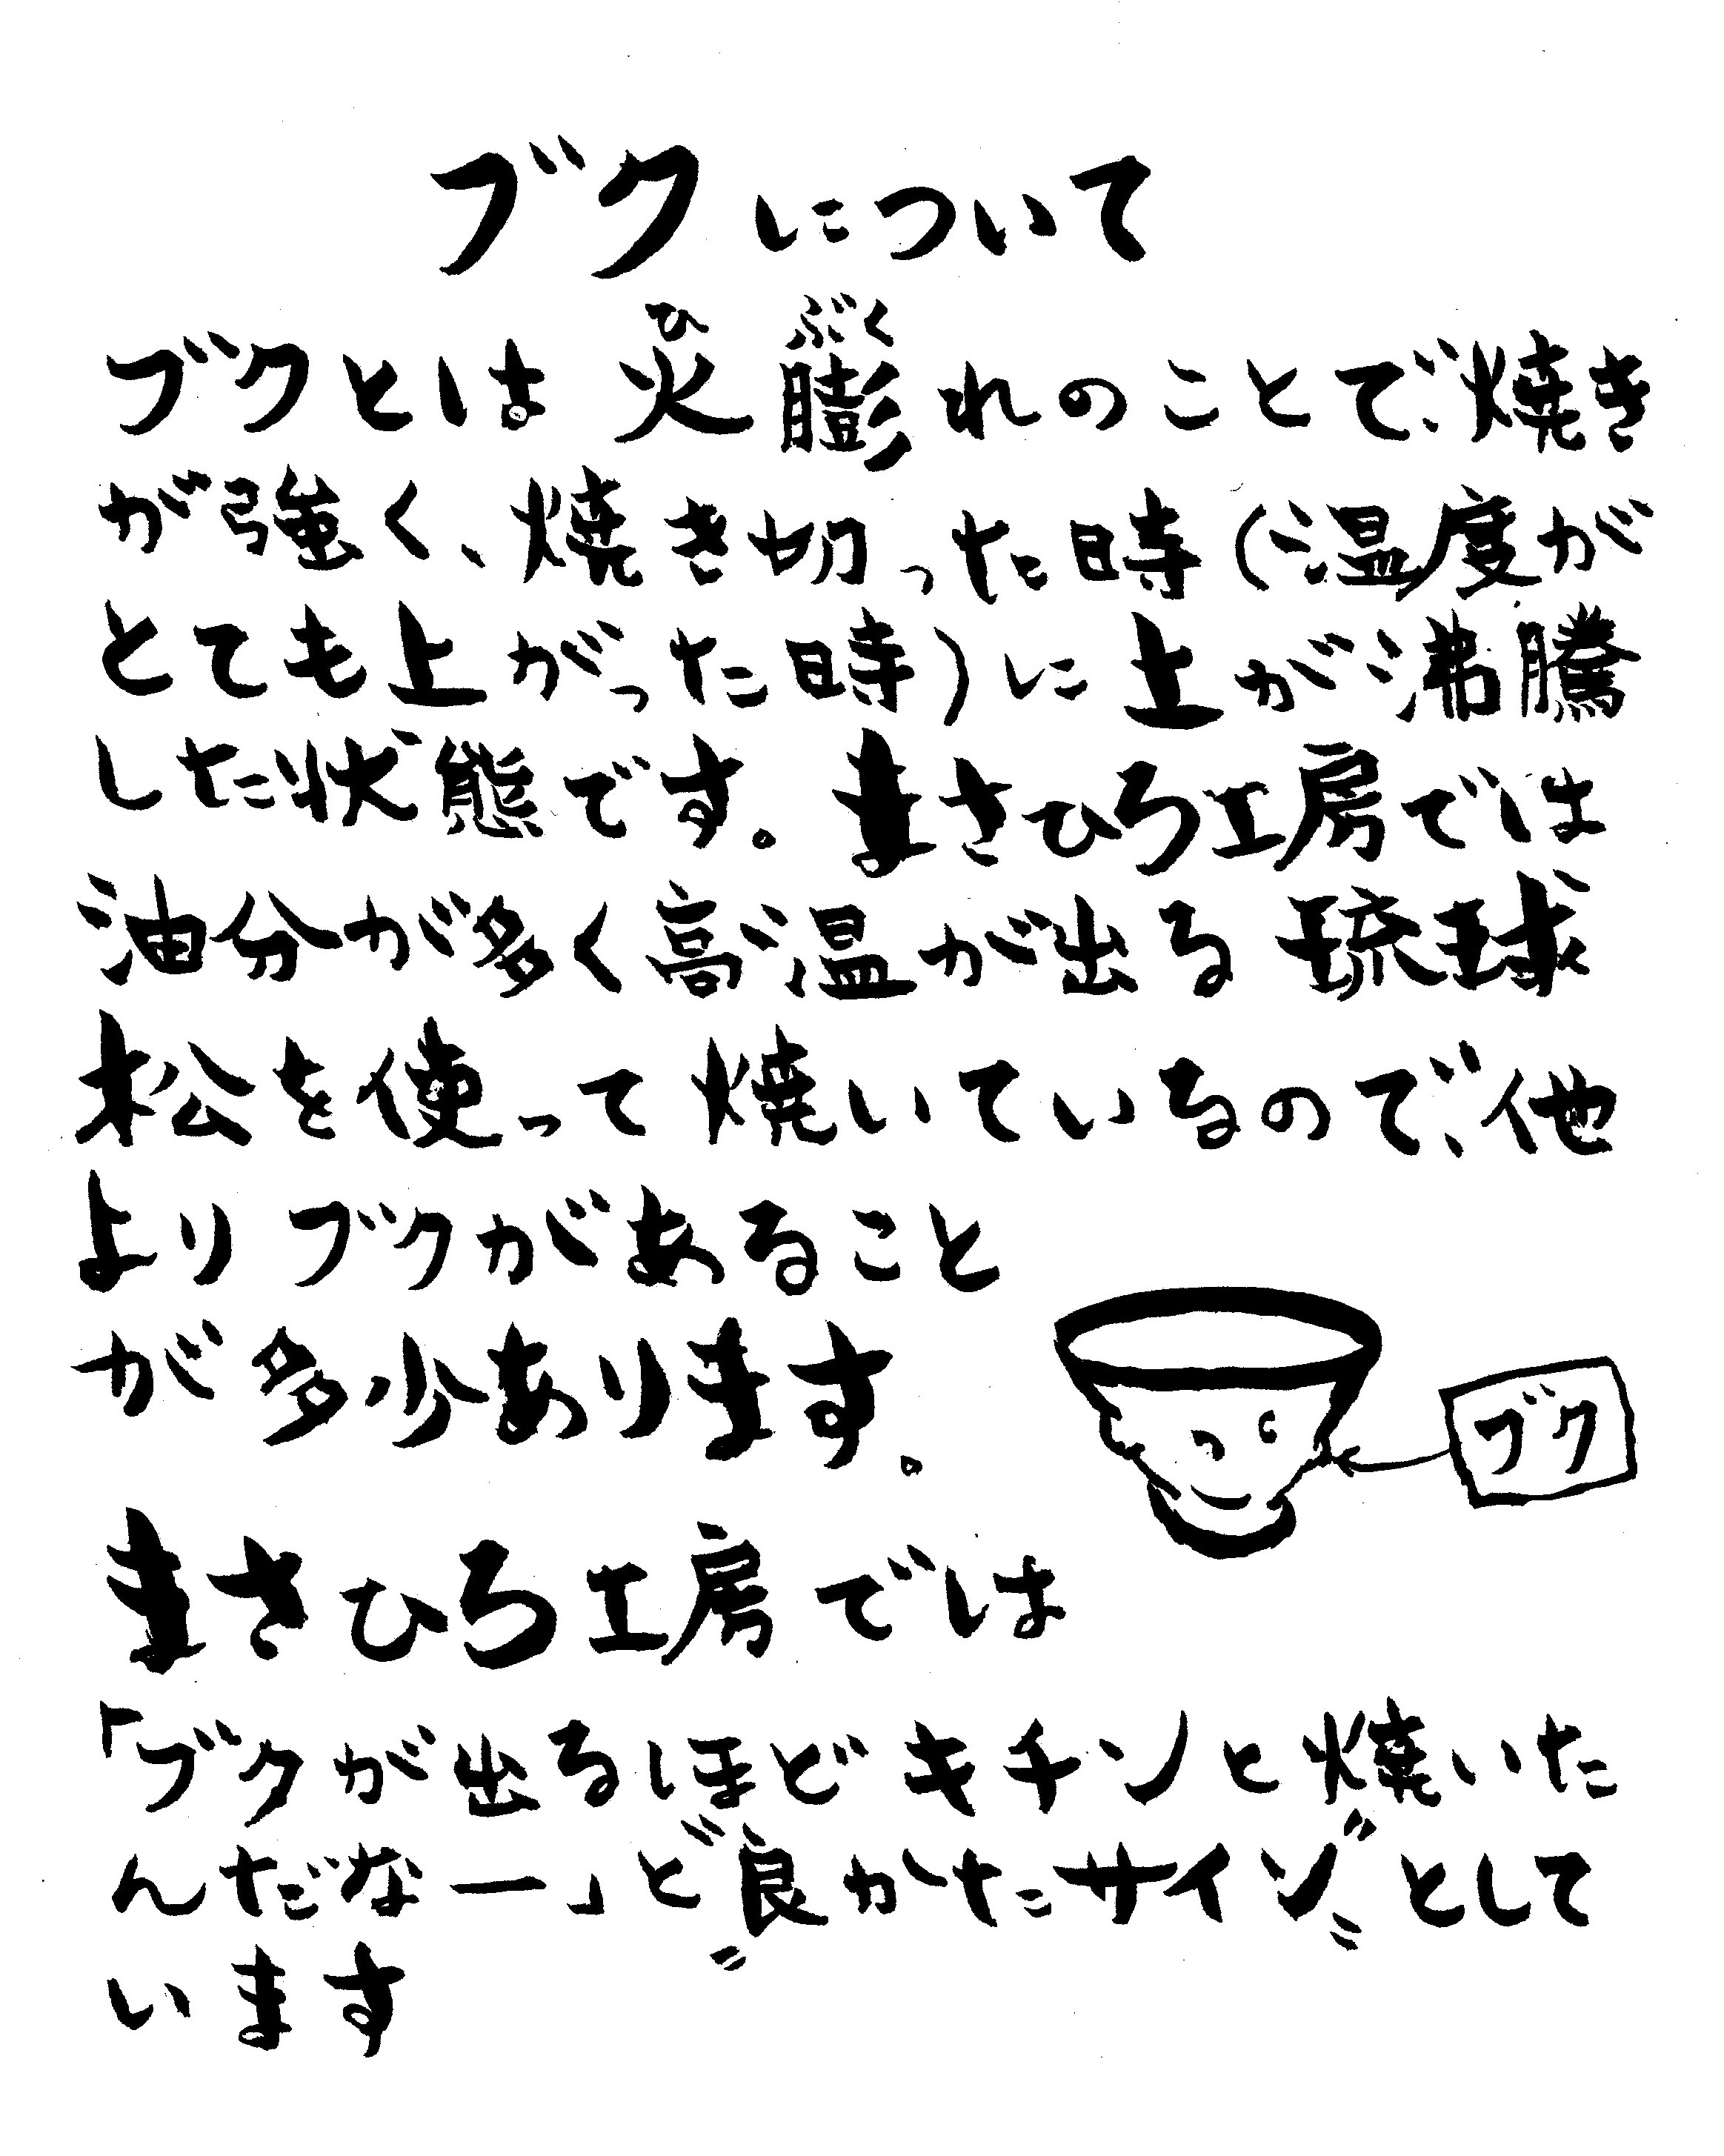 ブクについて
ブクとは火膨れのことで、焼き
ひ ぶく
が強く、焼き切った時(温度が
とても上がった時)に土が沸騰
した状態です。まさひろ工房では
油分が多く高温が出る琉球
松を使って焼いているので、他
よりブクがあること
が多少あります。
ブク
まさひろ工房では
「ブクが出るほどキチンと焼いた
んだなー」と〝良かたサイン〟として
います